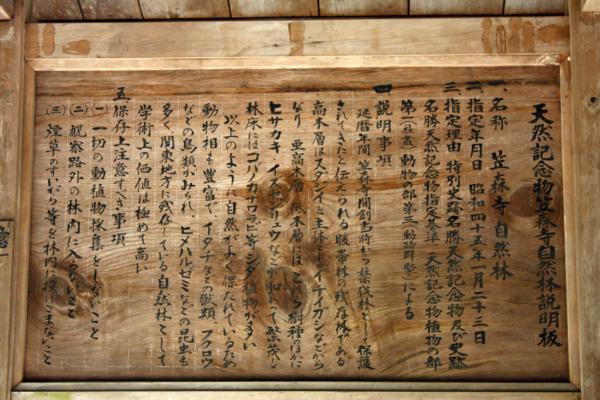 天然記念物笠森寺自然林説明板
一、名称 笠森寺自然林
二、指定年月日 昭和四十五年一月二十三日
三、指定理由 特別史跡名勝天然記念物及び史跡
名勝天然記念物指定基準 天然記念物植物の部
第二(社叢)動物の部第三(動物群聚)による
四、説明事項
延暦年間笠森寺開創当時から禁伐林として保護
されてきたと伝えられる暖帯林の残存林である
高木層はスダジイを主体としイチイガシなどから
なり 亜高木層 低木層には これら樹種のほかに
ヒサカキ イズセンリョウなどが加わって繁茂し
林床はコバノカナワラビ等シダ植物が多い
以上のように自然がよく保たれているため
動物相も豊富で、イタチなどの獣類 フクロウ
などの鳥類がみられ、ヒメハルゼミなどの昆虫も
多く、関東地方に残存している自然林として
学術上の価値は極めて高い
五、保存上注意すべき事項
(一)一切の動植物採集をしないこと
(二)観察路外の林内に入らないこと
(三)煙草のすいがら等を林内に捨てないこと